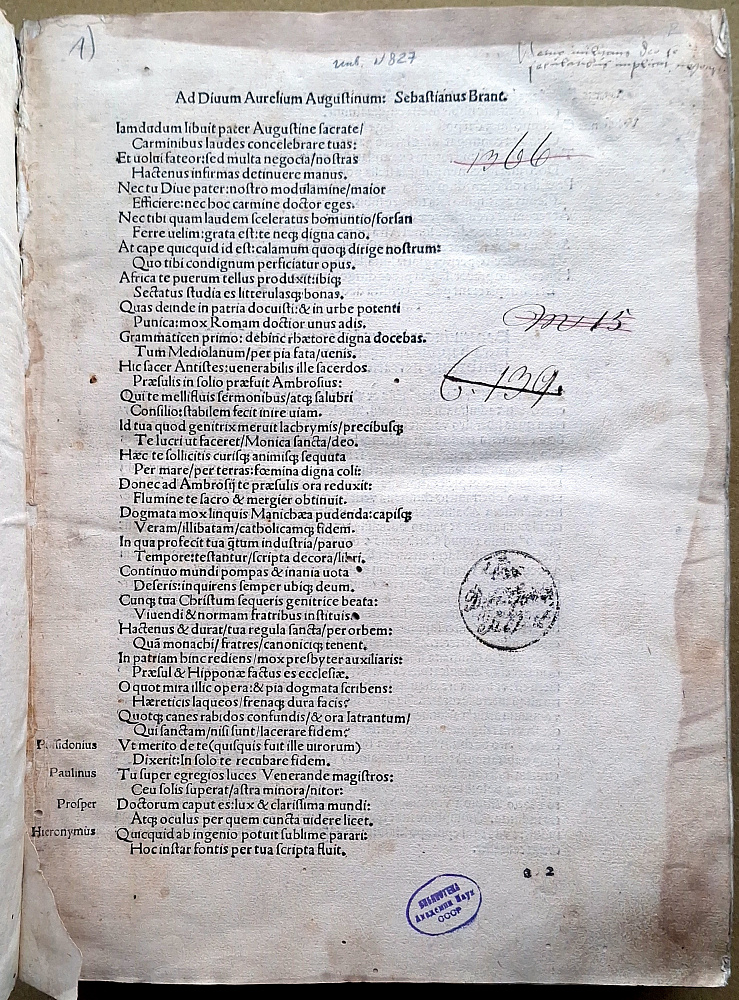 1)
inb. N 827
Ad Diuum Aurelium Augustinum: Sebastianus Brant.
Iamdudum libuit pater Augustine sacrate/
Carminibus laudes concelebrare tuas:
Et uolui fateor: sed multa negocia/nostras
Hactenus infirmas detinuere manus.
Nec tu Diue pater: nostro modulamine/maior
Efficiere: nec hoc carmine doctor eges.
Nec tibi quam laudem sceleratus homuntio/forsan
Ferre uelim: grata est: te neq; digna cano.
At cape quicquid id est: calamum quoq; dirige nostrum:
Quo tibi condignum perficiatur opus.
Africa te puerum tellus produxit: ibiq;
Sectatus studia es litterulasq; bonas.
Quas deinde in patria docuisti: & in urbe potenti
Punica: mox Romam doctior unus adis.
Grammaticen primo: dehinc rhætore digna docebas.
Tum Mediolanum/per pia fata/uenis.
Hic sacer Antistes: uenerabilis ille sacerdos
Præsulis in solio præfuit Ambrosius:
Qui te mellifluis sermonibus/atq; salubri
Consilio: stabilem fecit inire uiam.
Id tua quod genitrix meruit lachrymis/precibusq;
Te lucri ut faceret/Monica sancta/deo.
Hæc te sollicitis curisq; animisq; sequuta
Per mare/per terras: fœmina digna coli:
Donec ad Ambrosij te præsulis ora reduxit:
Flumine te sacro & mergier obtinuit.
Dogmata mox linquis Manichæa pudenda: capisq;
Veram/illibatam/catholicamq; fidem.
In qua profecit tua q̃tum industria/paruo
Tempore: testantur/scripta decora/libri.
Continuo mundi pompas & inania uota
Deseris: inquirens semper ubiq; deum.
Cunq; tua Christum sequeris genitrice beata:
Viuendi & normam fratribus instituis.
Hactenus & durat/tua regula sancta/per orbem:
Quã monachi/fratres/canoniciq; tenent.
In patriam hinc rediens/mox presbyter auxiliaris:
Præsul & Hipponæ factus es ecclesiæ.
O quot mira illic opera: & pia dogmata scribens:
Hæreticis laqueos/frenaq; dura facis?
Quotq; canes rabidos confundis/& ora latrantum/
Qui sanctam/nisi sunt/lacerare fidem?
Possidonius Vt merito de te (quisquis fuit ille uirorum)
Dixerit: In solo te recubare fidem.
Paulinus Tu super egregios luces Venerande magistros:
Ceu solis superat/astra minora/nitor:
Prosper Doctorum caput es: lux & clarissima mundi:
Atq; oculus per quem cuncta uidere licet.
Hieronymus Quicquid ab ingenio potuit sublime parari:
Hoc instar fontis per tua scripta fluit.
1366
m 15
6.139.
a 2
БИБЛИОТЕКА
Академии Наук
СССР